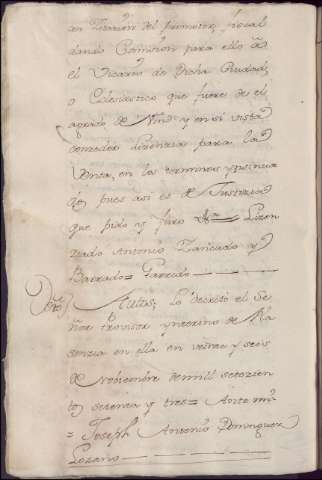 en Razon del promotor fiscal
dando Comision para ello a
el Vicario de Dicha Ciudad,
o Eclesiastico que fuere de el
agrado de Vmd y en su vista
conceder licencia para la
Venta, en los terminos
pues asi es de Justicia
que pido y juro = Licen
ziado Antonio y
Barrado = Garrido
Autos; lo decreto el Se
ñor Provisor ynterino de Pla
sencia en ella en veinte y seis
de Nobiembre de mill setezien
tos setenta y tres = Ante mi
= Joseph Antonio Dominguez
Lozano